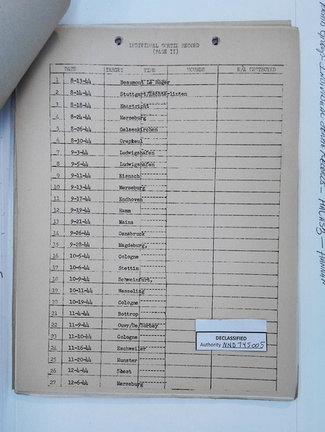 INDIVIDUAL SORTIE RECORD
(PAGE II)
DATE TARGET TYPE NUMBER E/A DESTROYED
1 8-13-44 Beaumont Le Roger
2 8-14-44 Stuttgart/
3 8-18-44 Maastricht
4 8-24-44 Merseburg
5 8-26-44 Gelsenkirchen
6 8-30-44
7 9-3-44 Ludwigshafen
8 9-5-44 Ludwigshafen
9 9-11-44
10 9-13-44 Merseburg
11 9-17-44 Endhoven
12 9-19-44 Hamm
13 9-21-44 Mainz
14 9-26-44 Osnabruck
15 9-28-44 Magdeburg,
16 10-5-44 Cologne
17 10-6-44 Stettin
18 10-9-44 Schweinfurt,
19 10-11-44 Wesseling
20 10-19-44 Cologne
21 11-4-44 Bottrop
22 11-9-44
23 11-10-44 Cologne
24 11-16-44 Eschweiler
25 11-20-44 Munster
26 12-4-44 Soest
27 12-6-44 Merseburg
DECLASSIFIED
Authority NND 745005